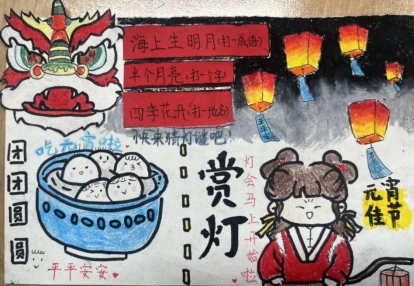 海上生明月(打一成语)
半个月亮(打一字)
四季花开(打一地名)
快来猜灯谜吧!
吃元宵啦
团团圆圆
平平安安
赏灯
灯会马上开始啦
元宵佳节